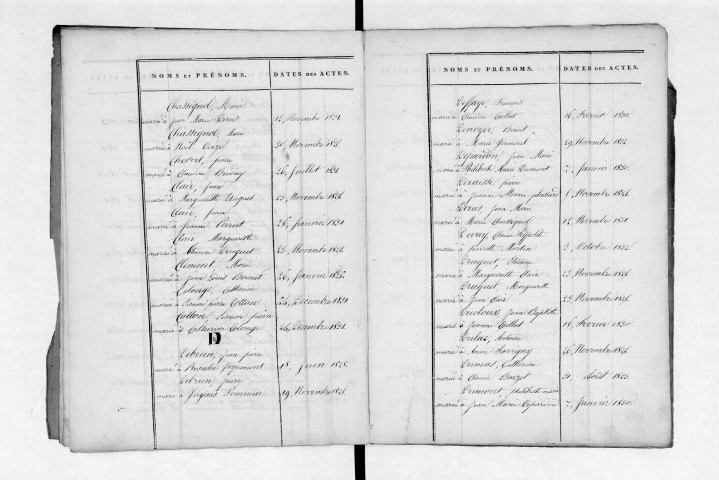 NOMS ET PRÉNOMS. DATES DES ACTES.
Chassignol, Marie
marié à Jean Marie Denis 12, Novembre 1821.
Chassignol, Marie
mariée à Noël 20, Novembre 1826
Chevret, pierre
marié à Claudine 26, Juillet 1821.
Clair, Jean
marié à Marguerite Druguet 23, Novembre 1826
Clair, Jean
marié à Jeanne Perret 26, Janvier 1821
Clair, Marguerite
marié à Druguet 23, Novembre 1826.
Clément, Marie
mariée à Jean Louis Bonnet 26, Janvier 1826.
Colonge, Catherine
mariée à pierre Cotton 24, Décembre 1821.
Cotton, pierre
marié à Catherine Colonge 24, Décembre 1821.
D
Debrun, Jean pierre
marié à Rosalie Jacquemont 18, Juin 1828.
Debrun, pierre
marié à Virginie Pommier 19, Novembre 1828.
NOMS ET PRÉNOMS. DATES DES ACTES.
Deffay, François
marié à Claudine 16, Février 1820.
Denoyer, Benoit
marié à Marie 29, Novembre 1822.
Jean Marie
marié à Philiberte Marie Dumont 7, Janvier 1820.
pierre
marié à Jeanne Marie 6, Novembre 1826.
Denis, Jean Marie
marié à Marie Chassignol 12, Novembre 1821.
Claude
marié à pierrette Martin 3, Octobre 1822.
Druguet, Étienne
marié à Marguerite Clair 23, Novembre 1826
Druguet, Marguerite
mariée à Jean Clair 23, Novembre 1826.
Ducloux, Jean Baptiste
marié à Jeanne 16, Février 1820.
Dulac, Antoine
marié à Anne Savigny 26, Novembre 1822.
Dumas, Catherine
mariée à Claude 21, Août 1822.
Dumont, philiberte marie
mariée à Jean Marie 7, Janvier 1820.